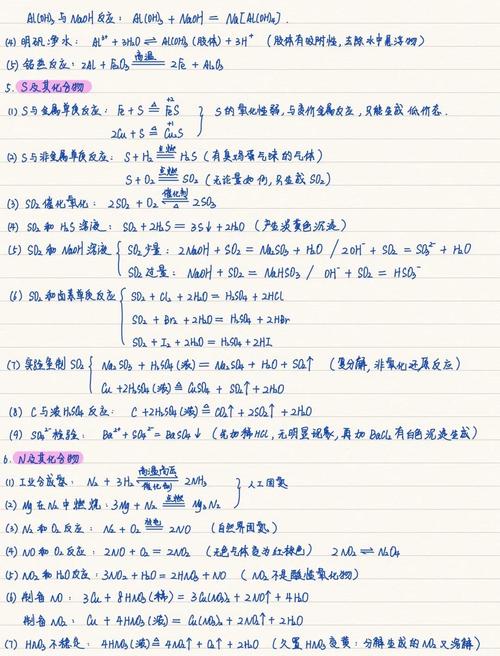 Al(OH)₃ 与 NaOH 反应: Al(OH)₃ + NaOH = Na[Al(OH)₄].
(4) 明矾净水: Al³⁺ + 3H₂O ⇌ Al(OH)₃ (胶体) + 3H⁺ (胶体有吸附性, 去除水中悬浮物)
(5) 铝热反应: 2Al + Fe₂O₃ =高温= 2Fe + Al₂O₃
5. S及其化合物
(1) S与金属单质反应: Fe + S =△= FeS (+2) } S的氧化性弱, 与变价金属反应, 只能生成低价态.
2Cu + S =△= Cu₂S (+1)
(2) S与非金属单质反应: S + H₂ =点燃= H₂S (有臭鸡蛋气味的气体)
S + O₂ =点燃= SO₂ (无论量如何, 只生成SO₂)
(3) SO₂催化氧化: 2SO₂ + O₂ =催化剂/△= 2SO₃
(4) SO₂和H₂S溶液: SO₂ + 2H₂S = 3S↓ + 2H₂O (产生淡黄色沉淀)
(5) SO₂和NaOH溶液 { SO₂少量: 2NaOH + SO₂ = Na₂SO₃ + H₂O / 2OH⁻ + SO₂ = SO₃²⁻ + H₂O
SO₂过量: NaOH + SO₂ = NaHSO₃ / OH⁻ + SO₂ = HSO₃⁻
(6) SO₂和卤素单质反应 { SO₂ + Cl₂ + 2H₂O = H₂SO₄ + 2HCl
SO₂ + Br₂ + 2H₂O = H₂SO₄ + 2HBr
SO₂ + I₂ + 2H₂O = H₂SO₄ + 2HI
(7) 实验室制SO₂ { Na₂SO₃ + H₂SO₄(浓) = Na₂SO₄ + H₂O + SO₂↑ (复分解, 非氧化还原反应)
Cu + 2H₂SO₄(浓) =△= CuSO₄ + SO₂↑ + 2H₂O
(8) C与浓H₂SO₄反应: C + 2H₂SO₄(浓) =△= CO₂↑ + 2SO₂↑ + 2H₂O
(9) SO₄²⁻检验: Ba²⁺ + SO₄²⁻ = BaSO₄↓ (先加稀HCl, 无明显现象, 再加BaCl₂有白色沉淀生成)
6. N及其化合物
(1) 工业合成氨: N₂ + 3H₂ ⇌高温高压/催化剂 2NH₃ } 人工固氮
(2) Mg在N₂中燃烧: 3Mg + N₂ =点燃= Mg₃N₂
(3) N₂和O₂反应: N₂ + O₂ =放电= 2NO (自然界固氮)
(4) NO和O₂反应: 2NO + O₂ = 2NO₂ (无色气体变为红棕色) 2NO₂ ⇌ N₂O₄
(5) NO₂和H₂O反应: 3NO₂ + H₂O = 2HNO₃ + NO (NO₂不是酸性氧化物)
(6) 制备NO: 3Cu + 8HNO₃(稀) = 3Cu(NO₃)₂ + 2NO↑ + 4H₂O
制备NO₂: Cu + 4HNO₃(浓) = Cu(NO₃)₂ + 2NO₂↑ + 2H₂O
(7) HNO₃不稳定: 4HNO₃(浓) =△= 4NO₂↑ + O₂↑ + 2H₂O (久置HNO₃变黄: 分解生成的NO₂又溶解)